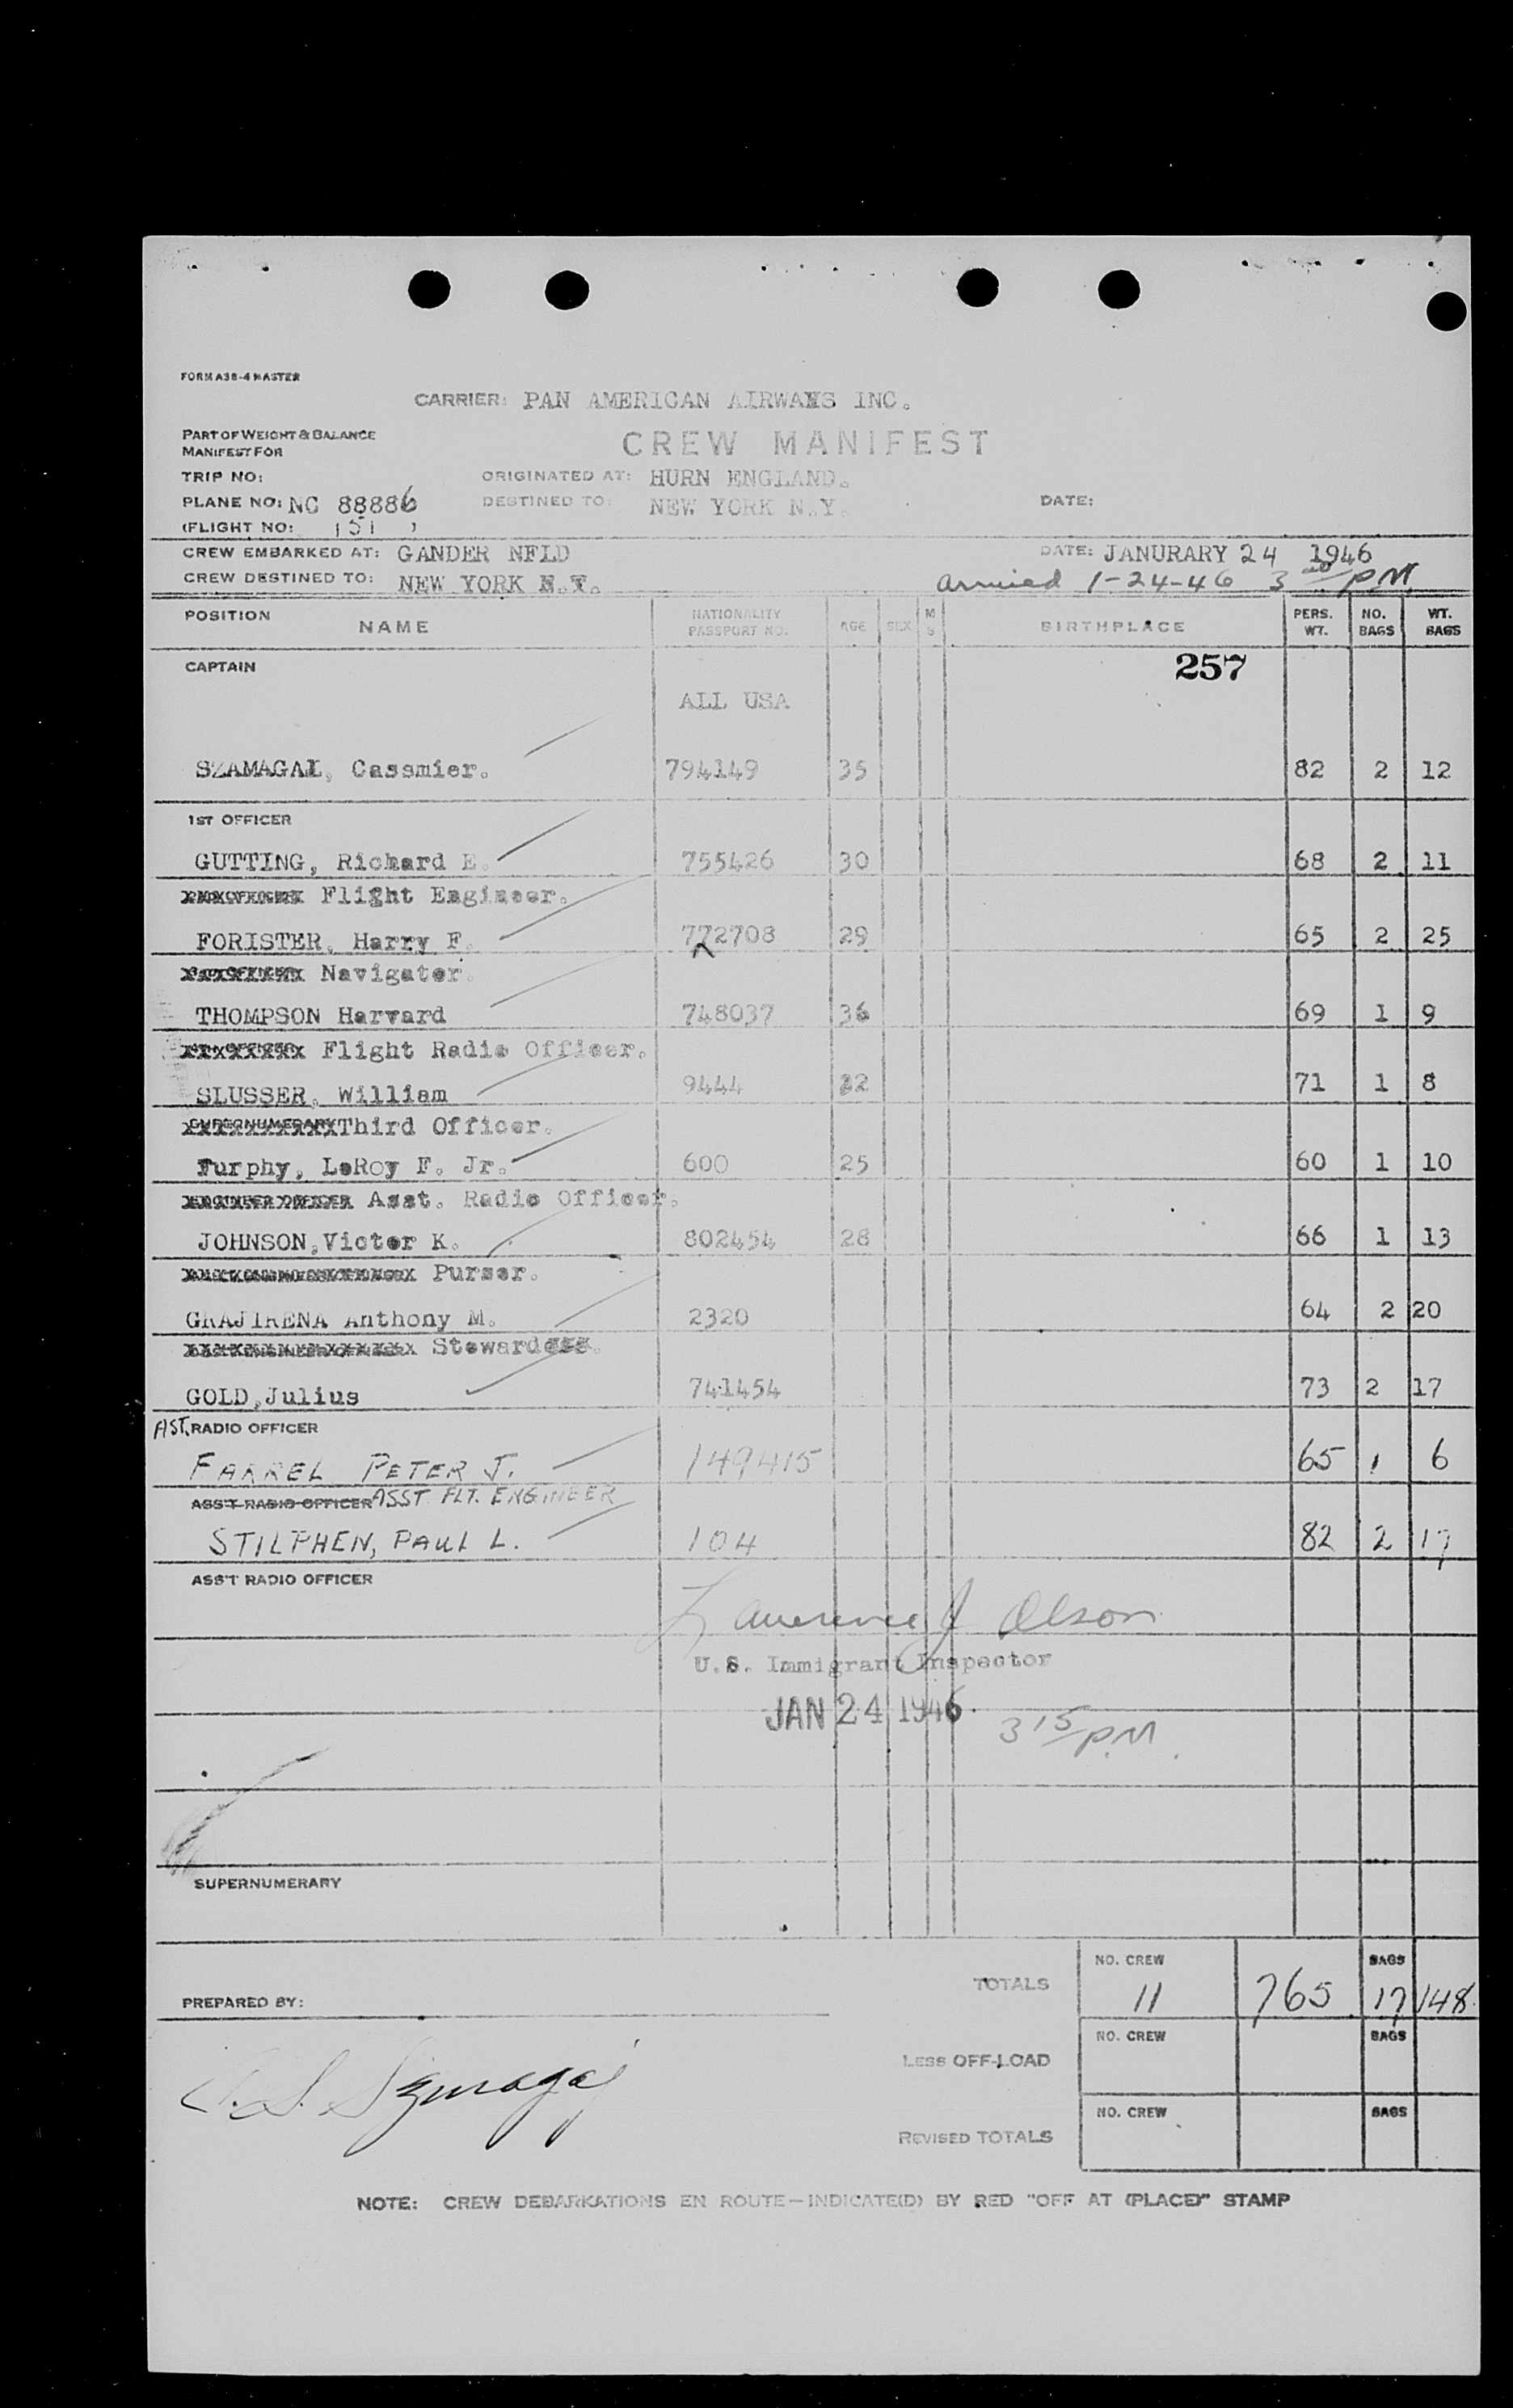 FORM A38-4 MASTER
CARRIER: PAN AMERICAN AIRWAYS INC.
PART OF WEIGHT & BALANCE
MANIFEST FOR
CREW MANIFEST
TRIP NO:
ORIGINATED AT: HURN ENGLAND.
PLANE NO: NC 88886
DESTINED TO: NEW YORK N.Y.
DATE:
(FLIGHT NO: 151 )
CREW EMBARKED AT: GANDER NFLD
DATE: JANURARY 24 1946
CREW DESTINED TO: NEW YORK N.Y.
arrived 1-24-46 3 PM
POSITION NAME NATIONALITY PASSPORT NO. AGE SEX M S BIRTHPLACE PERS. WT. NO. BAGS WT. BAGS
CAPTAIN
257
ALL USA
SZAMAGAL, Cassmier. 794149 35 82 2 12
1ST OFFICER
GUTTING, Richard E. 755426 30 68 2 11
Flight Engineer.
FORISTER, Harry F. 772708 29 65 2 25
Navigator.
THOMPSON Harvard 748037 36 69 1 9
Flight Radio Officer.
SLUSSER, William 9444 22 71 1 8
SUPERNUMERARY Third Officer.
Furphy, LeRoy F. Jr. 600 25 60 1 10
Asst. Radio Officer.
JOHNSON, Victor K. 802454 28 66 1 13
Purser.
Anthony M. 2320 64 2 20
Steward
GOLD, Julius 741454 73 2 17
AST. RADIO OFFICER
FARREL PETER J. 149415 65 1 6
ASS'T RADIO OFFICER ASST FLT. ENGINEER
STILPHEN, PAUL L. 104 82 2 17
ASS'T RADIO OFFICER
Lawrence J Olson
U.S. Immigrant Inspector
JAN 24 1946
3 15 P.M.
SUPERNUMERARY
TOTALS
NO. CREW 11 765 BAGS 17 148
PREPARED BY:
LESS OFF-LOAD
NO. CREW BAGS
REVISED TOTALS
NO. CREW BAGS
NOTE: CREW DEBARKATIONS EN ROUTE—INDICATE(D) BY RED "OFF AT (PLACE)" STAMP